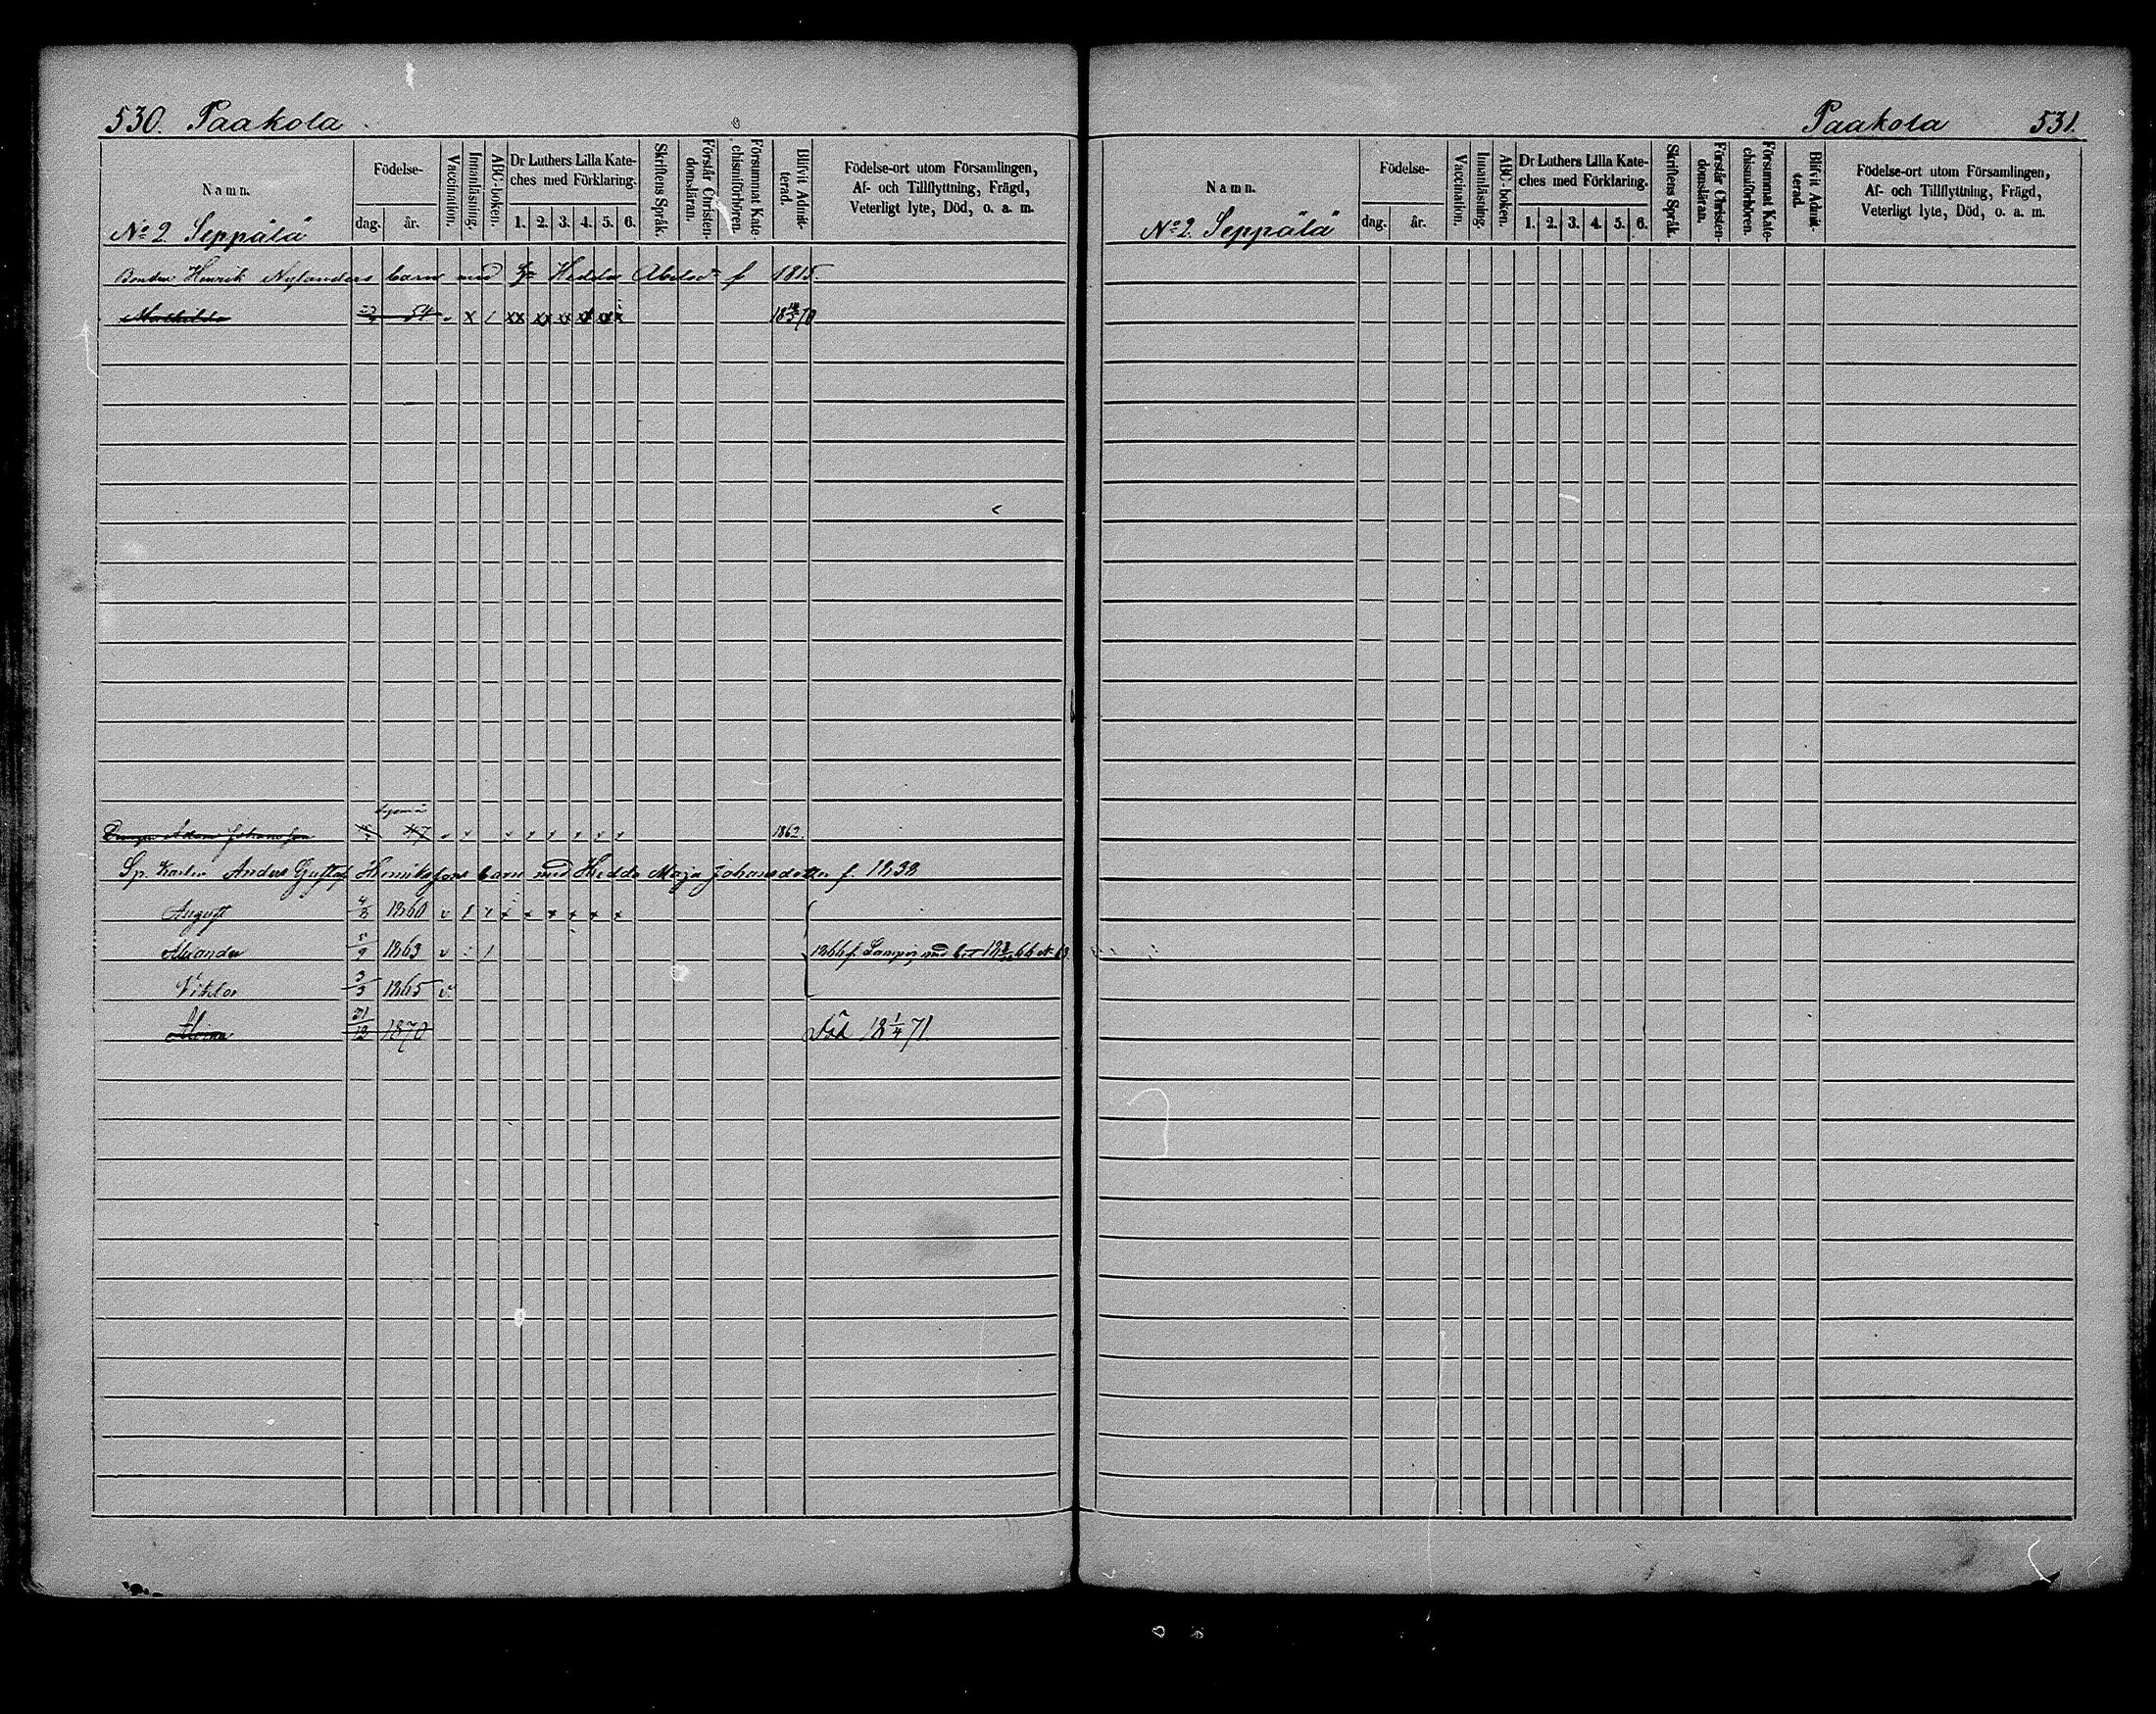 530. Paakola
Namn.
Födelse-
dag. år.
Vaccination.
Innanläsning.
ABC-boken.
Dr Luthers Lilla Kate-
ches med Förklaring.
1. 2. 3. 4. 5. 6.
Skriftens Språk.
Förstår Christen-
domsläran.
Försummat Kate-
chismiförhören.
Blifvit Admit-
terad.
Födelse-ort utom Församlingen,
Af- och Tillflyttning, Frägd,
Veterligt lyte, Död, o. a. m.
No 2. Seppälä
Bonden Henrik Nylanders barn med Hedda Abelsd f 1815.
Mathilda 54 v x / xx xx xx x x x
Adam Johansson 47 v x x x x x x x 1862.
Sp. Karlen Anders Gustaf Henrikssons barn med Hedda Maja Johansdotter f. 1838
August 1860 v x x x x x x x
Alexander 5/9 1863 v 1866 fr. med bet
Viktor 3/3 1865 v.
31/12 1870 Död 18 1/4 71.
Paakola 531.
Namn.
Födelse-
dag. år.
Vaccination.
Innanläsning.
ABC-boken.
Dr Luthers Lilla Kate-
ches med Förklaring.
1. 2. 3. 4. 5. 6.
Skriftens Språk.
Förstår Christen-
domsläran.
Försummat Kate-
chismiförhören.
Blifvit Admit-
terad.
Födelse-ort utom Församlingen,
Af- och Tillflyttning, Frägd,
Veterligt lyte, Död, o. a. m.
No 2. Seppälä